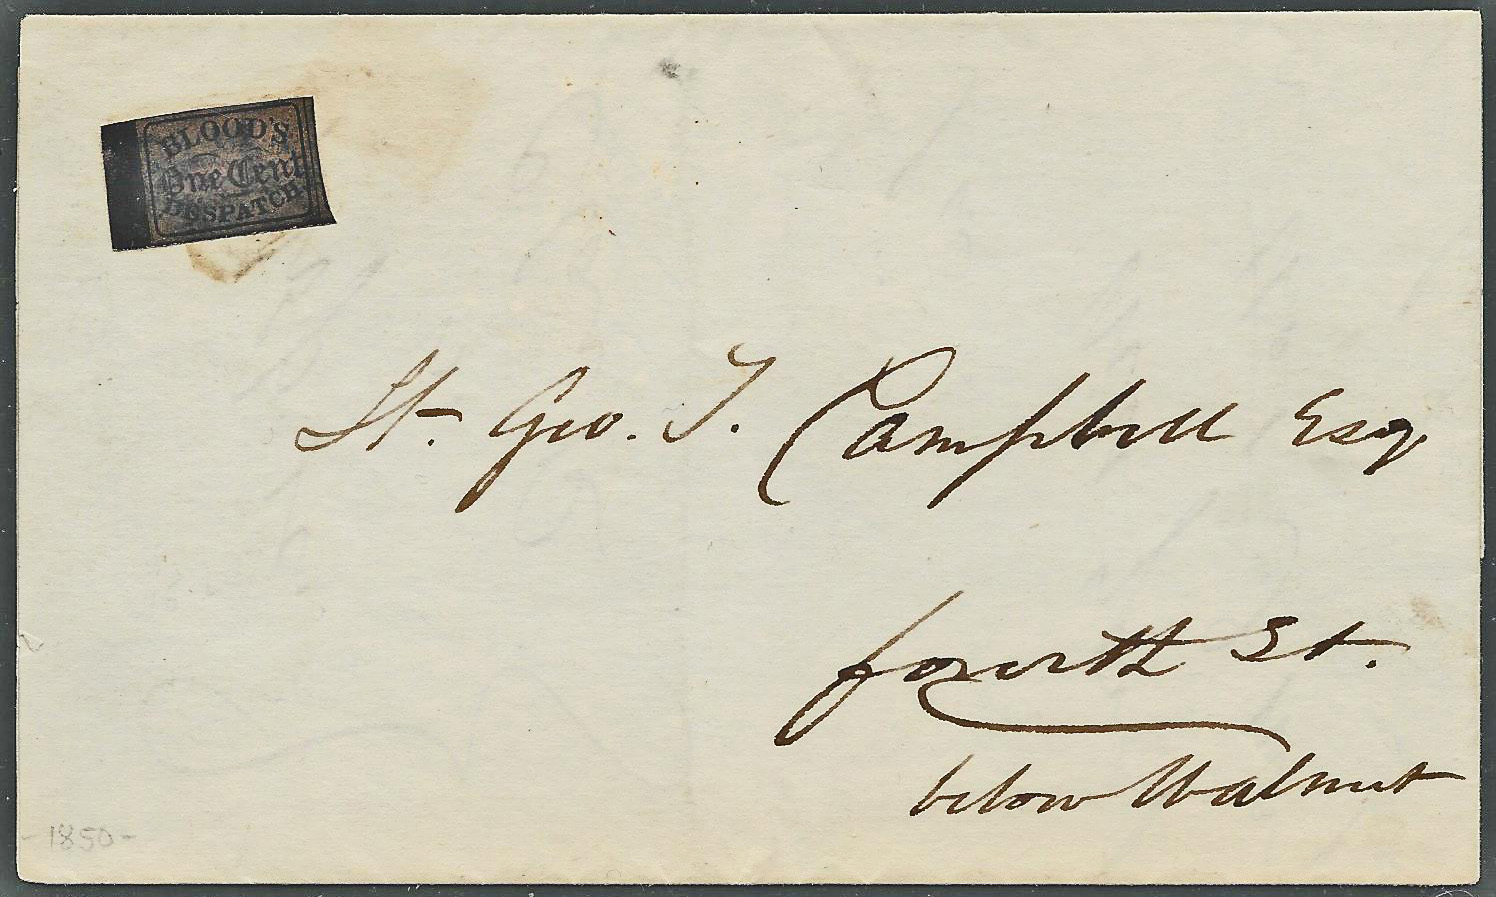 BLOOD'S
One Cent
DESPATCH
St. Geo. T. Campbell Esq
fourth St.
below Walnut
-1850-